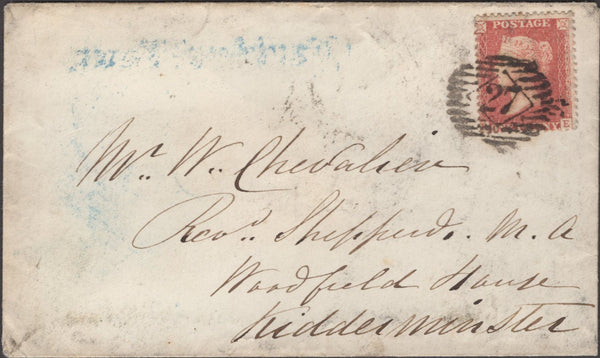 POSTAGE
27
Mr. W. Chevalier
Revd. Shepperd. M. A
Woodfield House
Kidderminster